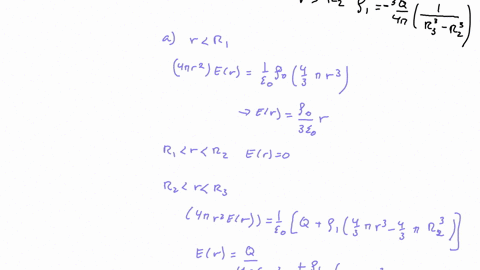 r > R₂ ρ₁ = -3Q/4π (1/(R₃³-R₂³))
a) r < R₁
(4πr²) E(r) = 1/ε₀ ρ₀ (4/3 π r³)
→ E(r) = ρ₀/3ε₀ r
R₁ < r < R₂ E(r) = 0
R₂ < r < R₃
(4πr² E(r)) = 1/ε₀ [Q + ρ₁ (4/3 π r³ - 4/3 π R₂³)]
E(r) = Q + ρ₁ (